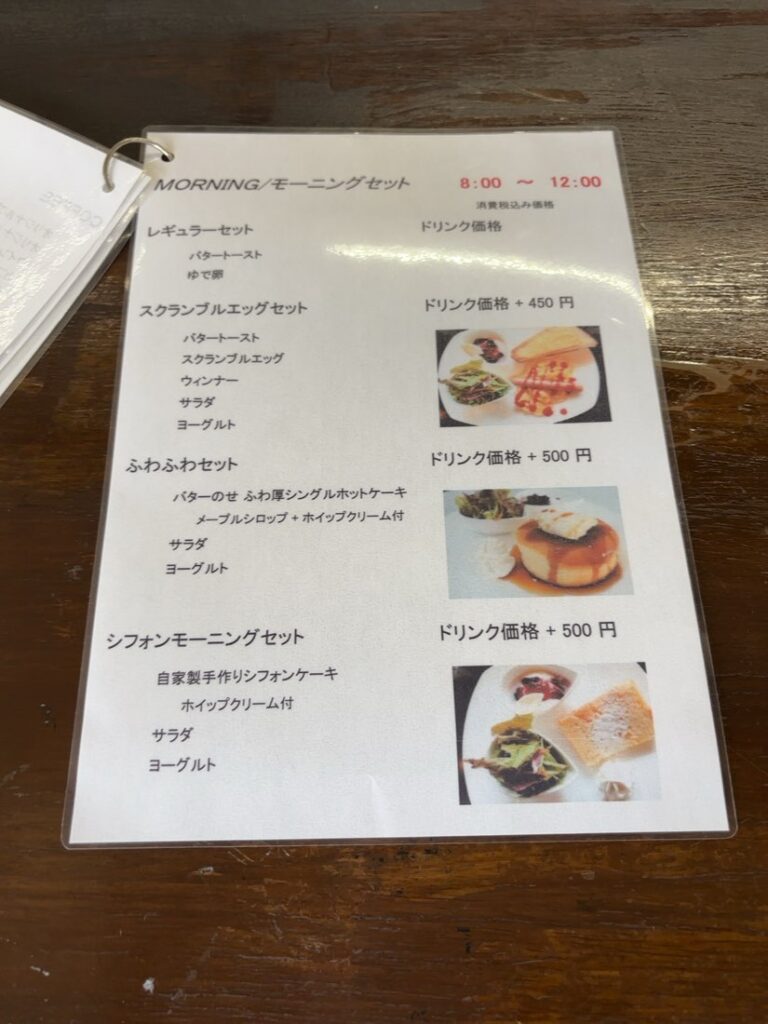 MORNING/モーニングセット 8:00 ～ 12:00
消費税込み価格
レギュラーセット ドリンク価格
バタートースト
ゆで卵
スクランブルエッグセット ドリンク価格 + 450 円
バタートースト
スクランブルエッグ
ウィンナー
サラダ
ヨーグルト
ふわふわセット ドリンク価格 + 500 円
バターのせ ふわ厚シングルホットケーキ
メープルシロップ + ホイップクリーム付
サラダ
ヨーグルト
シフォンモーニングセット ドリンク価格 + 500 円
自家製手作りシフォンケーキ
ホイップクリーム付
サラダ
ヨーグルト